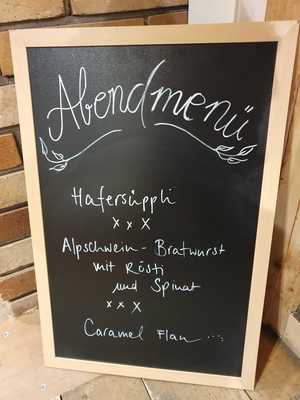 Abendmenü
Hafersüppli
x x x
Alpschwein - Bratwurst
mit Rösti
und Spinat
x x x
Caramel Flan ...